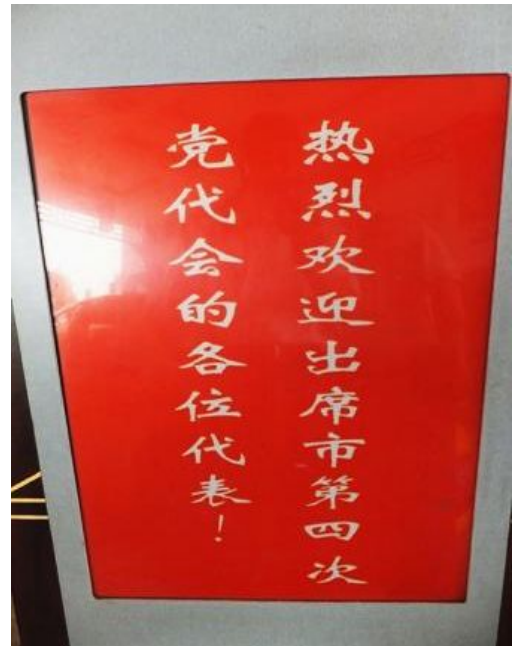 热烈欢迎出席市第四次
党代会的各位代表！